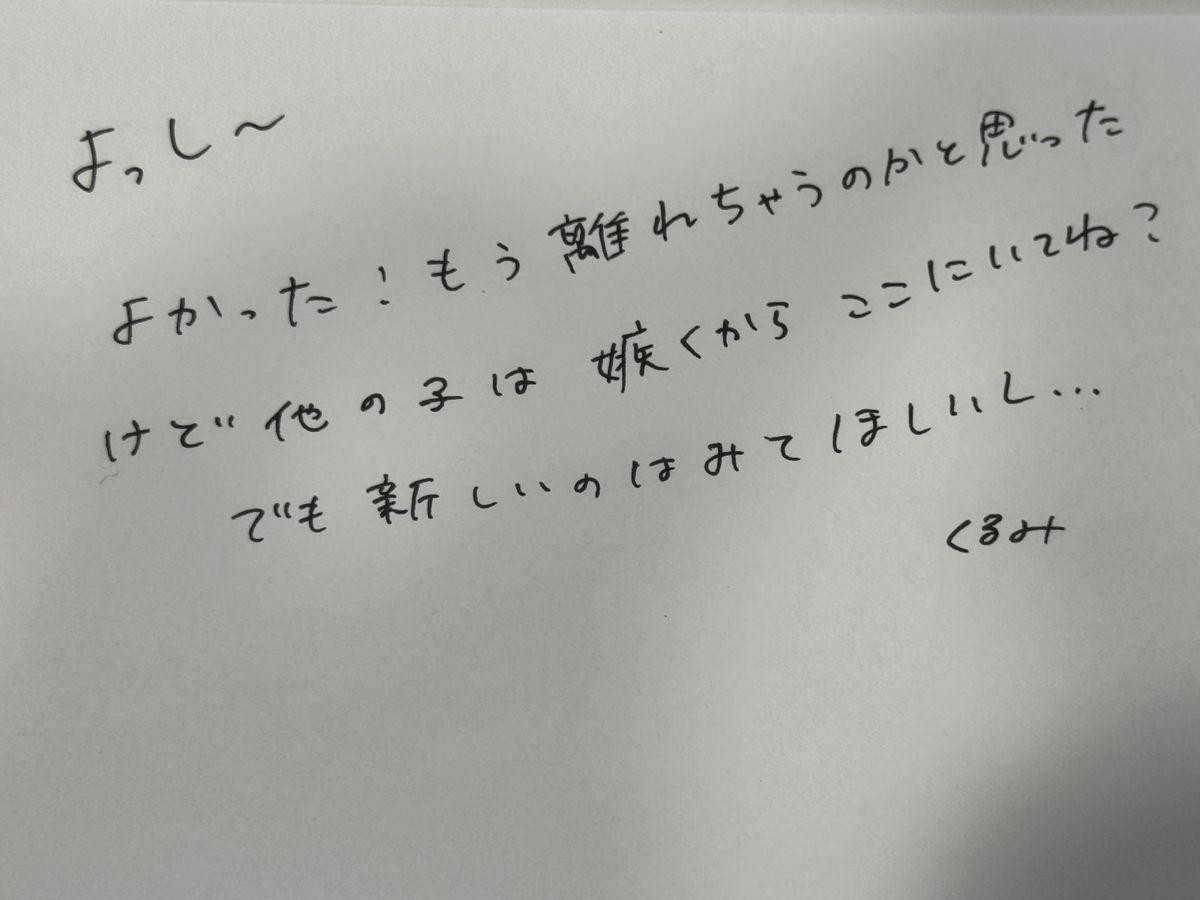 よっし〜
よかった！もう離れちゃうのかと思った
けど他の子は嫉くからここにいてね？
でも新しいのはみてほしいし...
くるみ